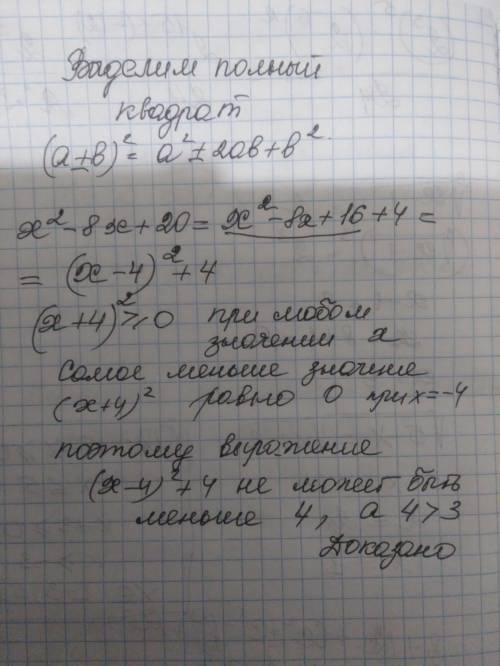 Выделим полный
квадрат
(a±b)² = a² ± 2ab + b²
x² - 8x + 20 = x² - 8x + 16 + 4 =
= (x - 4)² + 4
(x+4)² ≥ 0 при любом
значении x
Самое меньше значение
(x+4)² равно 0 при x = -4
поэтому выражение
(x-4)² + 4 не может быть
меньше 4, а 4 > 3
Доказано